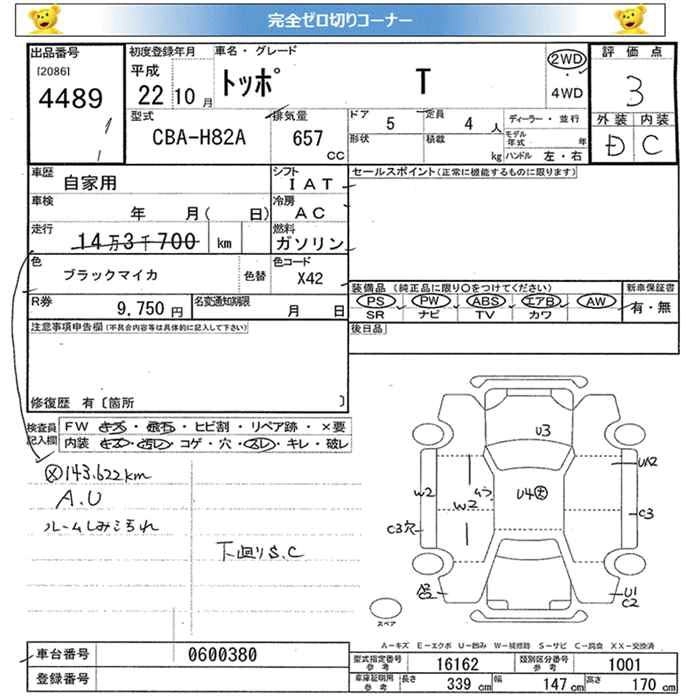 完全ゼロ切りコーナー
出品番号
[2086]
4489
初度登録年月
平成
22 10 月
車名・グレード
トッポ T
2WD
4WD
評価点
3
外装 内装
D C
型式
CBA-H82A
排気量
657
CC
ドア 5
定員 4 人
形状
積載 kg
ディーラー・並行
モデル年式 年
ハンドル 左・右
車歴
自家用
シフト
IAT
セールスポイント(正常に機能するものに限ります)
車検
年 月( 日)
冷房
AC
走行
14万3千700 km
燃料
ガソリン
色
ブラックマイカ
色替
色コード
X42
装備品 (純正品に限り○をつけてください)
新車保証書
PS PW ABS エアB AW
有・無
SR ナビ TV カワ
R券
9,750 円
名変通知期限
月 日
注意事項申告欄(不具合内容等は具体的に記入して下さい)
後日品
修復歴 有〔箇所 〕
検査員記入欄
FW キズ・飛石・ヒビ割・リペア跡・×要
内装 キズ・汚レ・コゲ・穴・スレ・キレ・破レ
143,622km
A.U
ルームしみこわれ
下廻りS.C
U3
UA2
W2
W2
ムラ
U4
C3
C3穴
A2
C2
U1
C2
スペア
A-キズ E-エクボ U-凹み W-補修跡 S-サビ C-腐食 XX-交換済
車台番号
0600380
登録番号
型式指定番号
参考
16162
類別区分番号
参考
1001
車庫証明用
参考
長さ 339 cm
幅 147 cm
高さ 170 cm